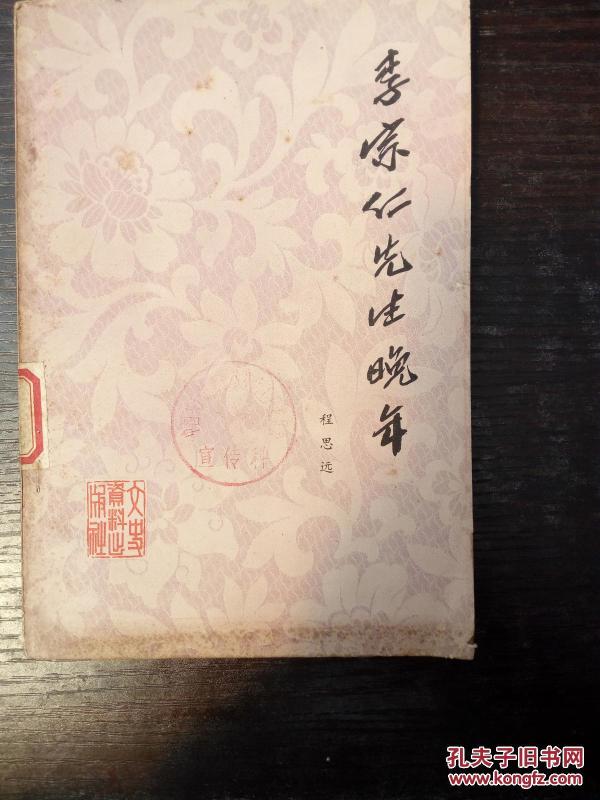 李宗仁先生晚年
程思远
宣传科
文史
资料出
版社
孔夫子旧书网
www.kongfz.com